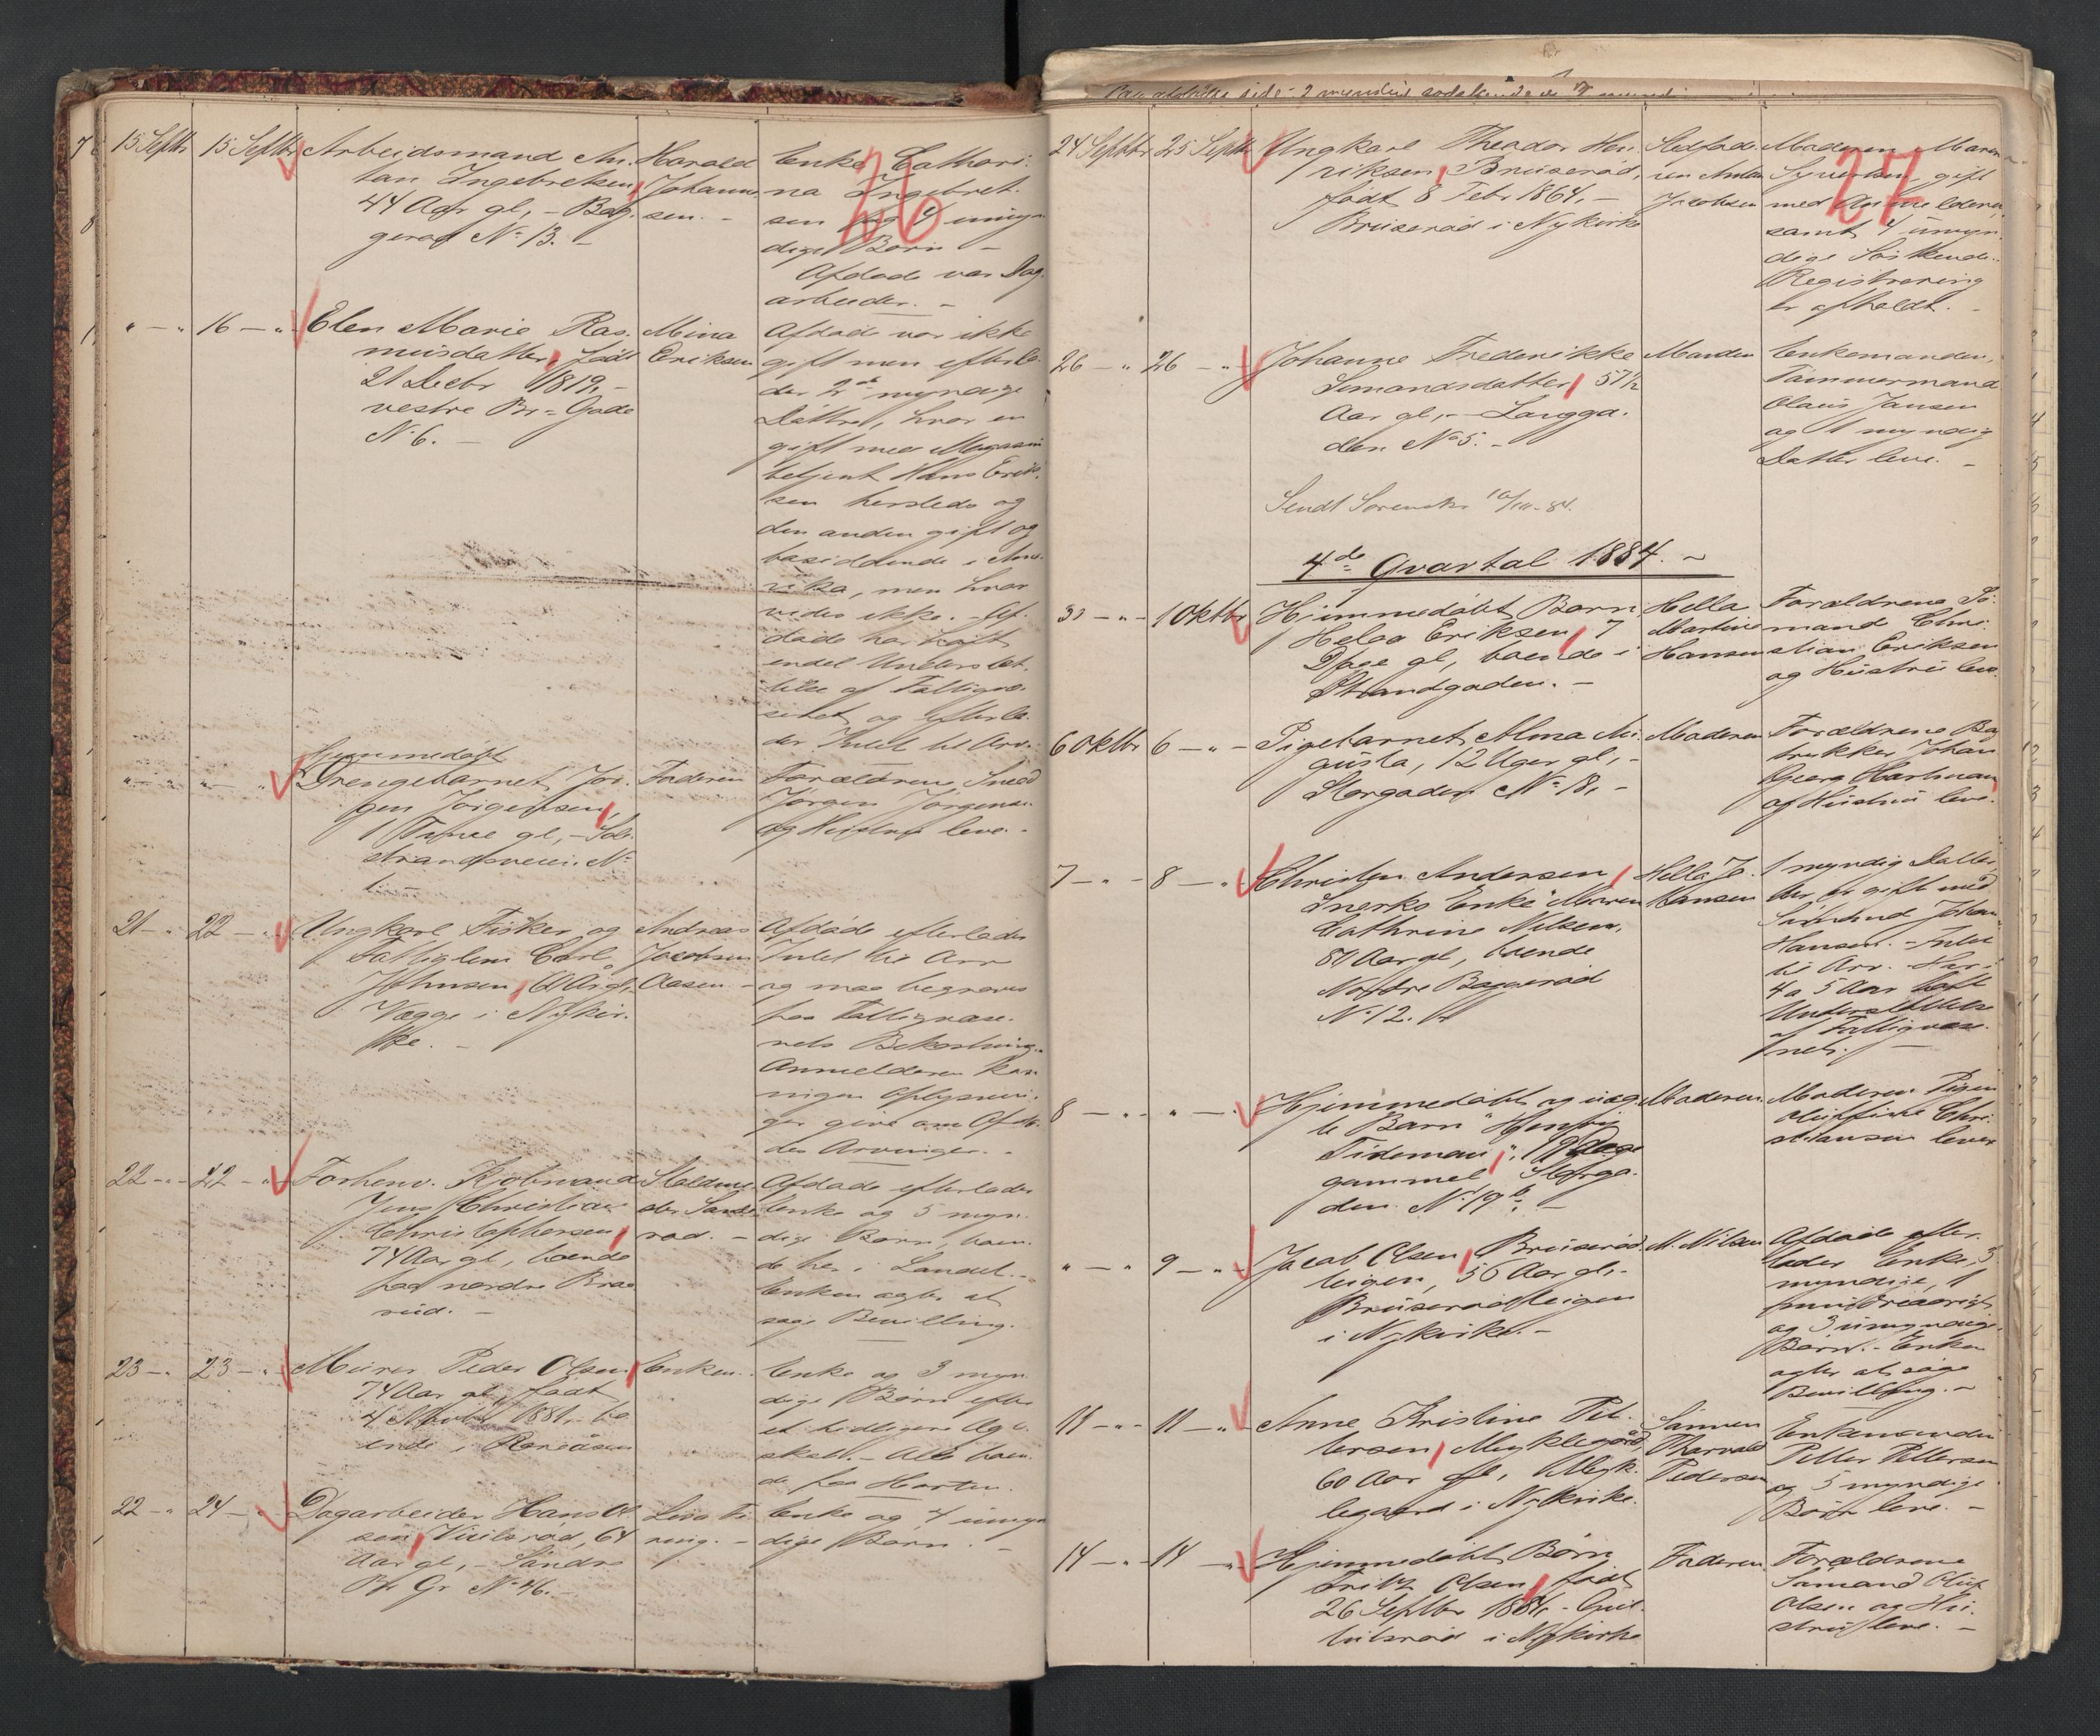 26
15 Septbr
15 Septbr
Arbeidsmand An-
tan Ingebretsen,
44 Aar gl, - Bag-
gerød No 13. -
Harald
Johann-
sen. -
Enke Cathari-
na Ingebret-
sen og 4 umyn-
dige Børn -
Afdøde var Dag-
arbeider. -
" - " 16 - " -
Elen Marie Ras-
musdatter, født
21 Decbr 1819, -
vestre Br = Gade
No 6. -
Mina
Eriksen
Afdøde var ikke
gift men efterla-
der 2de myndige
Døttre, hvor en
gift med Magasin
betjent Hans Erik-
sen herstede og
den anden gift og
bosiddende i Ame-
rika, men hvor
vides ikke. Af-
døde har havt
endel Understøt-
telse af Fattigvæ-
senet og efterla-
der Intet til Arv.
" - " " - "
Hjemmedøbt
Drengebarnet Jør-
gen Jørgensen,
1 Time gl, -
strandsveien No
1. -
Faderen
Forældrene Smed
Jørgen Jørgensen
og Hustru leve. -
21 - " 22 - "
Ungkarl Fisker og
Fattiglem Carl
Johnsen, Aar gl,
Vægge i Nykir-
ke. -
Andreas
Jacobsen
Aasen -
Afdøde efterlader
Intet til Arv
og maa begraves
paa Fattigvæse-
nets Bekostning.
Anmelderen kan
ingen Oplysnin-
ger give om Afdø-
des Arvinger. -
22 - " 22 - "
Forhenv. Kjøbmand
Jens Christian
Christophersen,
74 Aar gl, boende
paa nordre Braa-
rud. -
Enke og 5 myn-
dige Børn, boen-
de her i Landet. -
Enken agter at
søge Bevilling.
23 - " 23 - "
Murer Peder Olsen,
74 Aar gl, født
bo-
ende i Røreåsen
Enken.
Enke og 3 myn-
dige Børn efter
et tidligere Ægte-
skab. - Alle boen-
de paa Horten.
22 - " 24 - "
Dagarbeider Hans Ol-
sen, 64
Aar gl, - Søndre
Br Gr No 46. -
Enke og 4 umyn-
dige Børn. -
27
24 Septbr 25 Septbr
Ungkarl Theodor Hen-
riksen, Bruserød,
født 8 Febr 1864, -
Bruserød i Nykirke
Stedfade-
ren Anton
Jacobsen
Moderen Maren
Syvertsen, gift
med Anmelderen,
samt 4 umyn-
dige Søskende.
Registrering
er afholdt. -
26 - " 26 - "
Johanne Frederikke
Simonsdatter, 57½
Aar gl, - Langga-
den No 5. -
Manden
Enkemanden,
Tømmermand
Olaus Jansen
og 1 myndig
Datter leve. -
Sendt Sorenskr 10/10 - 84.
4de Qvartal 1884. ~
30 - " - 1 Oktbr
Hjemmedøbt Barn
Helga Eriksen, 7
Dage gl, boende i
Strandgaden. -
Hella
Martine
Hansen
Forældrene Sø-
mand Chri-
stian Eriksen
og Hustru leve.
6 Oktbr 6 - " -
Pigebarnet Alma Au-
gusta, 12 Uger gl, -
Storgaden No 18, -
Moderen
Forældrene Bog-
trykker Johan
Georg Hartman
og Hustru leve.
7 - " - 8 - "
Christen Andersen
Enke Maren
Cathrine Nilsen,
81 Aar gl, boende
Nordre Baggerød
No 12. -
Hella Jo-
Hansen
1 myndig Datter,
der er gift med
Sømand Johan
Hansen. - Intet
til Arv. Har i
4 a 5 Aar havt
Understøttelse
af Fattigvæse-
net. -
8 - " - " - "
Hjemmedøbt og uæg-
te Barn "Henry
Tideman", 19 Dage
gammel, Storga-
den No 19 b. -
Moderen.
Moderen Pigen
Chri-
stiansen lever
" - " 9 - "
Jacob Olsen, Bruserød-
eigen, 56 Aar gl, -
Bruserødeigen
i Nykirke. -
M. Nilsen
Afdøde efter-
lader Enke, 3
myndige, 1
mindreaarigt
og 3 umyndige
Børn. - Enken
agter at søge
Bevilling. -
11 - " - 11 - "
Anne Kristine Pet-
tersen, Myklegård,
60 Aar gl, Myk-
legaard i Nykirke.
Sønnen
Thorvald
Pedersen
Enkemanden
Petter Pettersen
og 5 myndige
Børn leve. -
14 - " - 14 - "
Hjemmedøbt Barn
Fritz Olsen, født
26 Septbr 1884, -
i Nykirke
Faderen
Forældrene
Sømand Oluf
Olsen og Hu-
stru leve. -